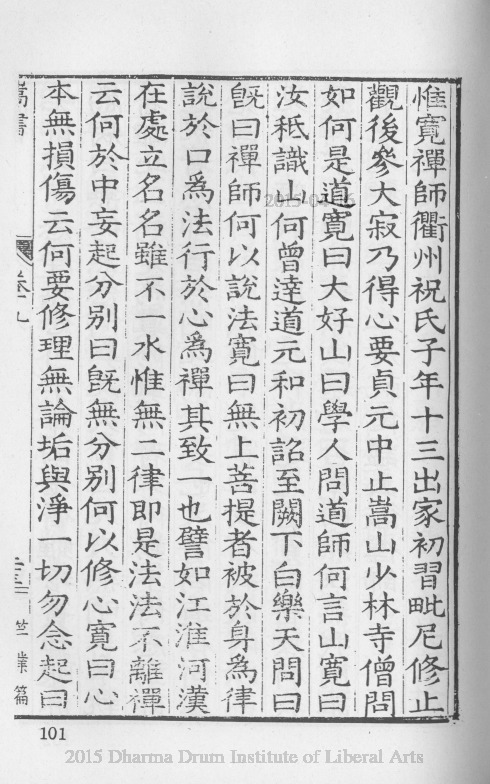 惟寛禪師衢州祝氏子年十三出家初習毗尼修止
觀後參大寂乃得心要貞元中止嵩山少林寺僧問
如何是道寛曰大好山曰學人問道師何言山寛曰
汝秪識山何曾達道元和初詔至闕下白樂天問曰
旣曰禪師何以說法寛曰無上菩提者被於身為律
說於口為法行於心為禪其致一也譬如江淮河漢
在處立名名雖不一水惟無二律即是法法不離禪
云何於中妄起分别曰旣無分别何以修心寛曰心
本無損傷云何要修理無論垢與淨一切勿念起曰
嵩書
卷十九
竺業篇
101
2015 Dharma Drum Institute of Liberal Arts